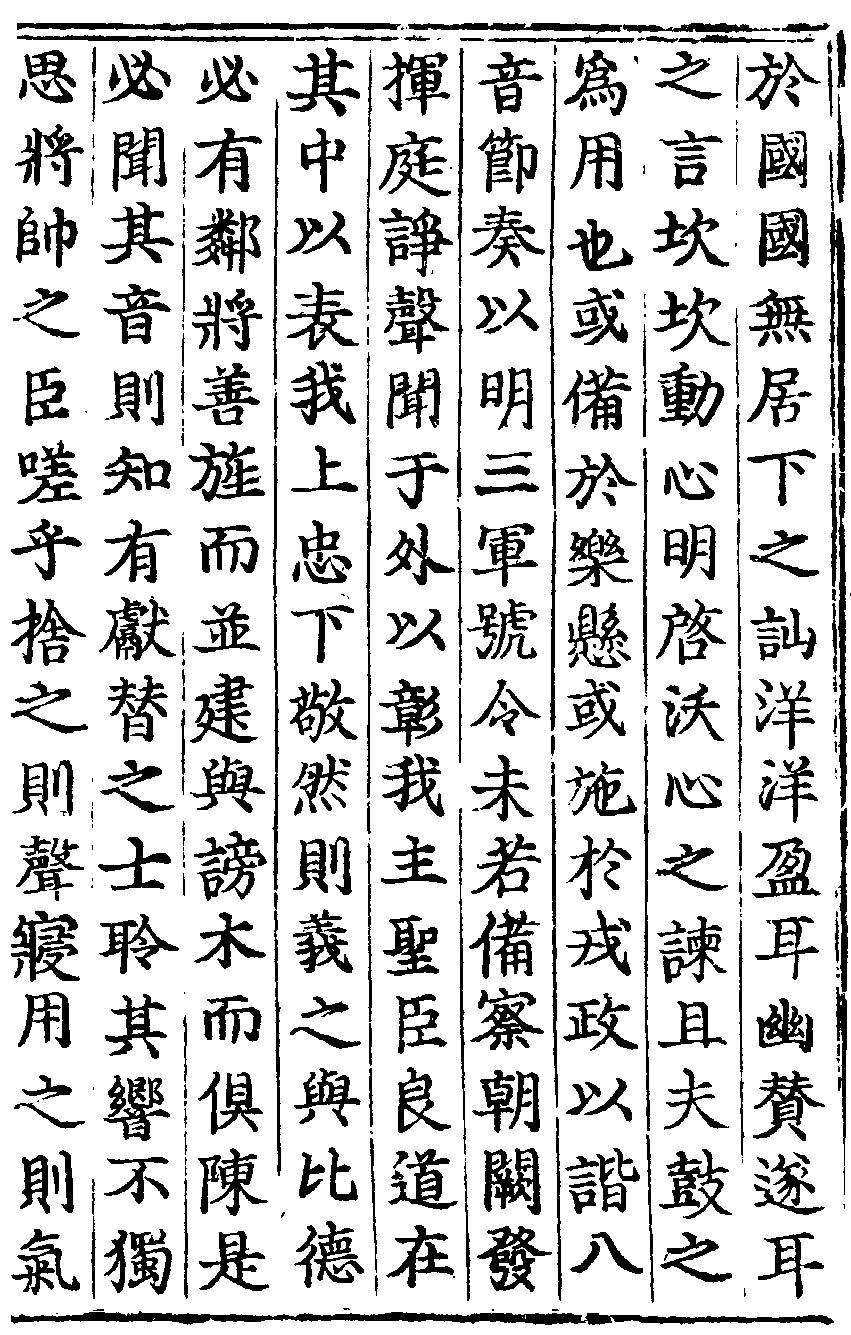 於國國無居下之訕洋洋盈耳幽贊遂耳
之言坎坎動心明啓沃心之諫且夫鼓之
爲用也或備於樂懸或施於戎政以諧八
音節奏以明三軍號令未若備察朝闕發
揮庭諍聲聞于外以彰我主聖臣良道在
其中以表我上忠下敬然則義之與比德
必有鄰將善旌而並建與謗木而俱陳是
必聞其音則知有獻替之士聆其響不獨
思將帥之臣嗟乎捨之則聲寢用之則氣